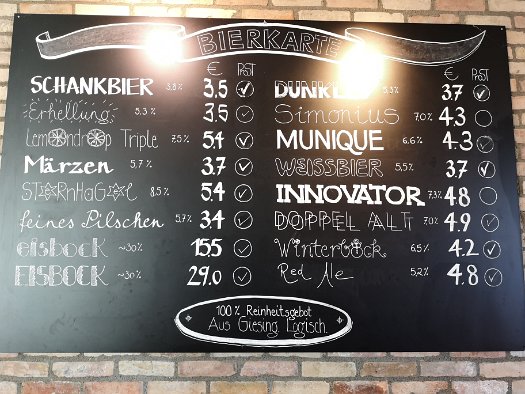 BIERKARTE
€ PROST
SCHANKBIER 3,8% 3,5
Erhellung 5,3% 3.5
Lemondrop Triple 7,5% 5,4
Märzen 5,7% 3.7
STERNHAGEL 8,5% 5.4
feines Pilschen 5,7% 3.4
eisbock ~30% 15,5
EISBOCK ~30% 29.0
€ PROST
DUNKLES 5,3% 3,7
Simonius 7.0% 4.3
MUNIQUE 6.6% 4.3
WEISSBIER 5,5% 3,7
INNOVATOR 7,3% 4.8
DOPPEL ALT 7,0% 4.9
Winterbock 6,5% 4.2
Red Ale 5,2% 4.8
100% Reinheitsgebot
Aus Giesing. Logisch.